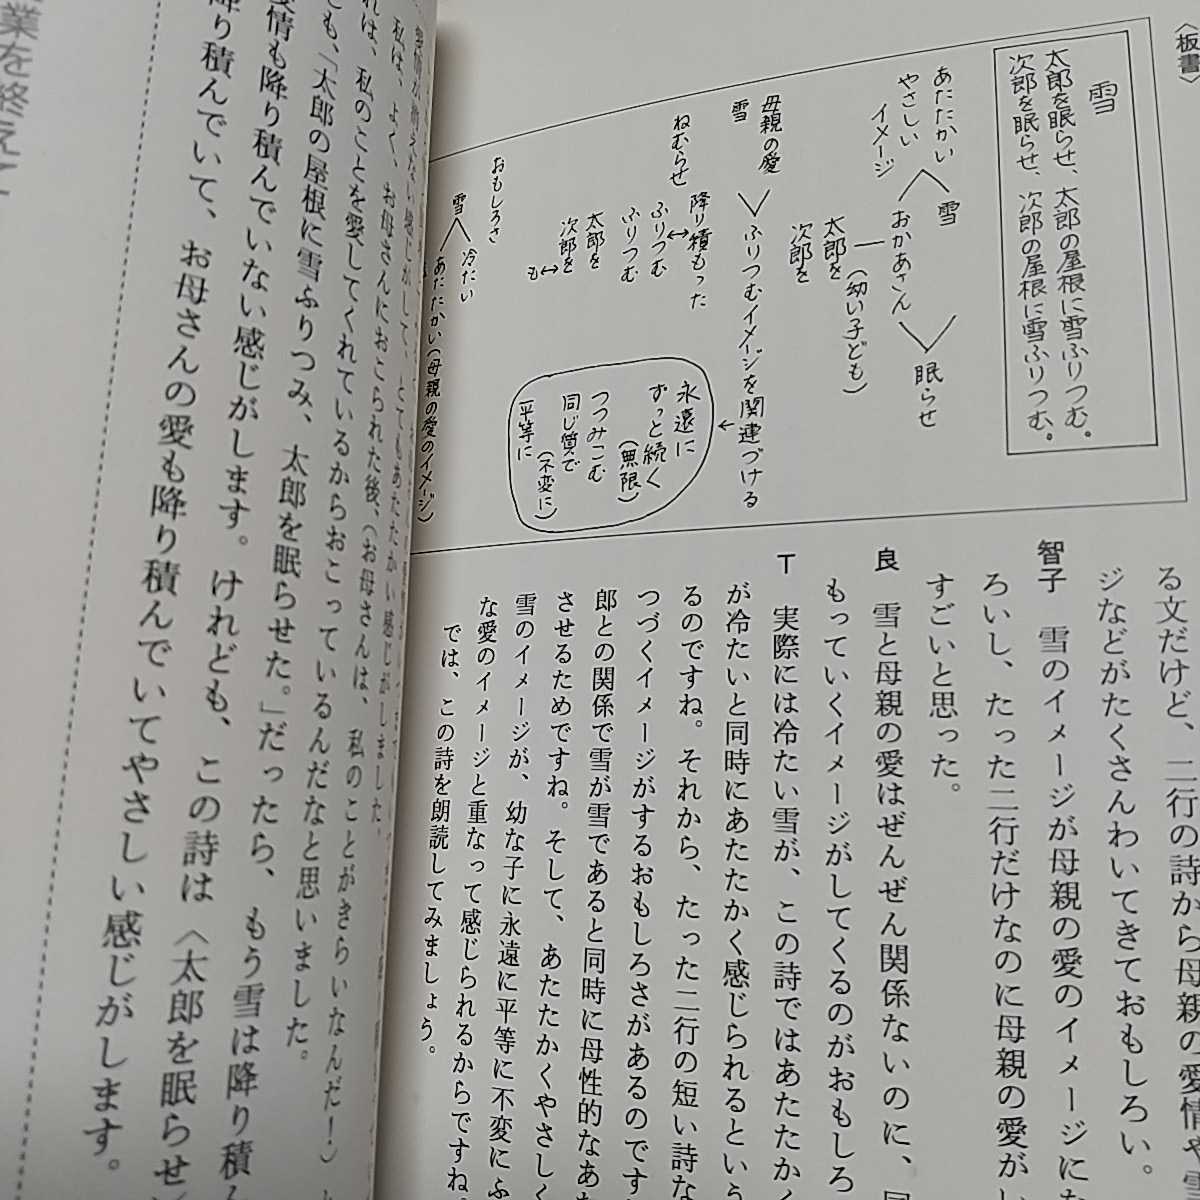 〈板書〉
雪
太郎を眠らせ、太郎の屋根に雪ふりつむ。
次郎を眠らせ、次郎の屋根に雪ふりつむ。
あたたかい
やさしい
イメージ
雪
おかあさん
眠らせ
太郎を
次郎を
(幼い子ども)
母親の愛
雪
ふりつむイメージを関連づける
ねむらせ
降り積もった
↔
ふりつむ
ふりつむ
太郎を
次郎を
↔
も
←
永遠に
ずっと続く
(無限)
つつみこむ
同じ質で
(不変に)
平等に
おもしろさ
雪
冷たい
あたたかい(母親の愛のイメージ)
る文だけど、二行の詩から母親の愛情や雪
ジなどがたくさんわいてきておもしろい。
智子 雪のイメージが母親の愛のイメージにな
ろいし、たった二行だけなのに母親の愛が
すごいと思った。
良 雪と母親の愛はぜんぜん関係ないのに、
もっていくイメージがしてくるのがおもしろ
T 実際には冷たい雪が、この詩ではあたたかく
が冷たいと同時にあたたかく感じられるという
るのですね。それから、たった二行の短い詩な
つづくイメージがするおもしろさがあるのです
郎との関係で雪が雪であると同時に母性的なあ
させるためですね。そして、あたたかくやさしく
雪のイメージが、幼な子に永遠に平等に不変にふ
な愛のイメージと重なって感じられるからですね。
では、この詩を朗読してみましょう。
感じがして、とてもあたたかい感じがしました。
私は、よく、お母さんにおこられた後、(お母さんは、私のことがきらいなんだ!)
れは、私のことを愛してくれているからおこっているんだなと思いました。
ても、「太郎の屋根に雪ふりつみ、太郎を眠らせた。」だったら、もう雪は降り積
愛情も降り積んでいない感じがします。けれども、この詩は〈太郎を眠らせ
降り積んでいて、お母さんの愛も降り積んでいてやさしい感じがします。
業を終えて